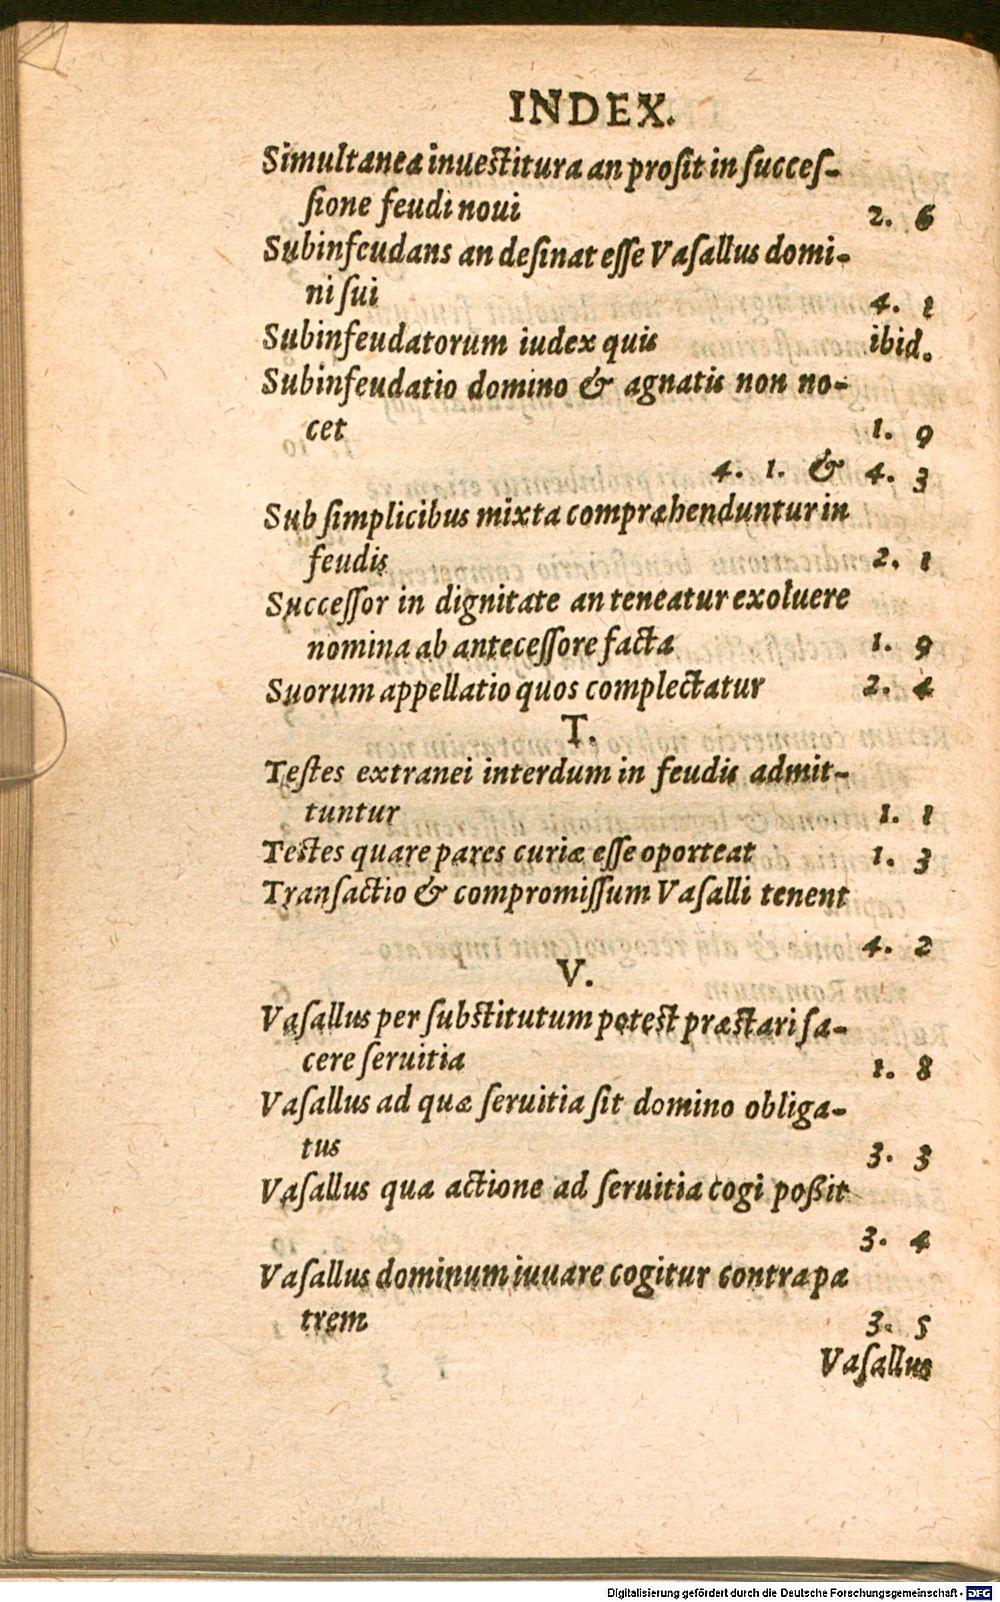 INDEX.
Simultanea inuestitura an prosit in succeſ-
ſione feudi noui 2. 6
Subinfeudans an deſinat eſſe Vaſallus domi-
ni ſui 4. 1
Subinfeudatorum iudex quis ibid.
Subinfeudatio domino & agnatis non no-
cet 1. 9
4. 1. & 4. 3
Sub ſimplicibus mixta compræhenduntur in
feudis 2. 1
Succeſſor in dignitate an teneatur exoluere
nomina ab anteceſſore facta 1. 9
Suorum appellatio quos complectatur 2. 4
T.
Teſtes extranei interdum in feudis admit-
tuntur 1. 1
Teſtes quare pares curiæ eſſe oporteat 1. 3
Tranſactio & compromiſſum Vaſalli tenent
4. 2
V.
Vaſallus per ſubſtitutum poteſt præſtari fa-
cere ſeruitia 1. 8
Vaſallus ad quæ ſeruitia ſit domino obliga-
tus 3. 3
Vaſallus qua actione ad ſeruitia cogi poßit
3. 4
Vaſallus dominum iuuare cogitur contra pa
trem 3. 5
Vaſallus
Digitalisierung gefördert durch die Deutsche Forschungsgemeinschaft - DFG